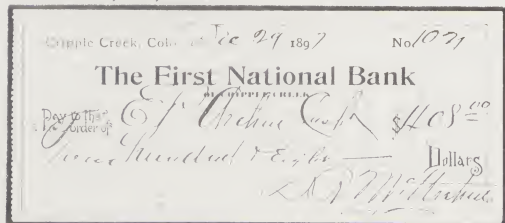 Cripple Creek, Colo. Dec 29 1897 No. 1071
The First National Bank
OF CRIPPLE CREEK
Pay to the order of E J Cash $408 00
Four hundred & Eight — Dollars